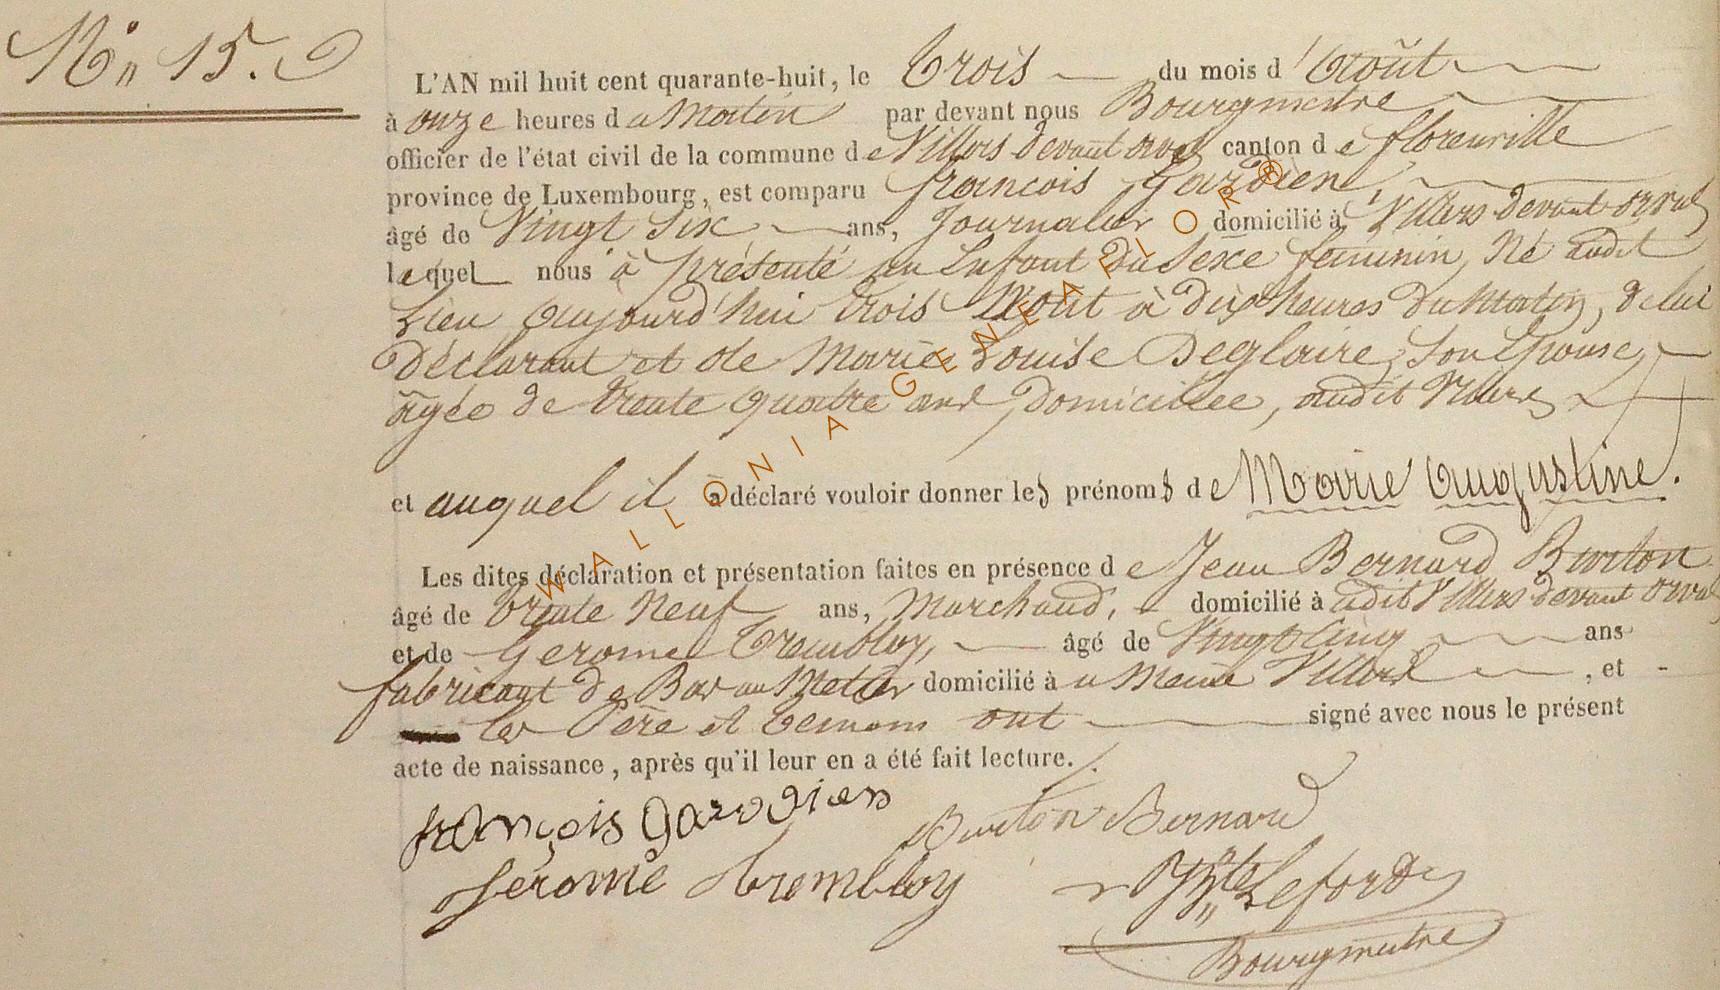 N° 15.
L'AN mil huit cent quarante-huit, le trois du mois d'Août
à onze heures du Matin par devant nous Bourgmestre
officier de l'état civil de la commune de Villers devant orval canton de florenville
province de Luxembourg, est comparu françois Gardien,
âgé de Vingt Six ans, Journalier domicilié à Villers devant orval
lequel nous à présenté un Enfant du Sexe féminin, Né audit
Lieu aujourd'hui trois Août à dix heures du Matin, de lui
déclarant et de Marie Louise Deglaire, Son Epouse,
âgée de trente quatre ans, domiciliée, audit Villers
et auquel il a déclaré vouloir donner les prénoms de Marie Augustine.
Les dites déclaration et présentation faites en présence de Jean Bernard Burton
âgé de trente Neuf ans, Marchand, domicilié à udit Villers devant orval
et de Gerome Trembloy, âgé de Vingt Cinq ans
fabricant de Bas au Metier domicilié à u Meme Villers, et
les Père et temoins ont signé avec nous le présent
acte de naissance, après qu'il leur en a été fait lecture.
françois Gardien Burton Bernard
Jerome Trembloy
Bourgmestre
WALLONIA GENEALOR®